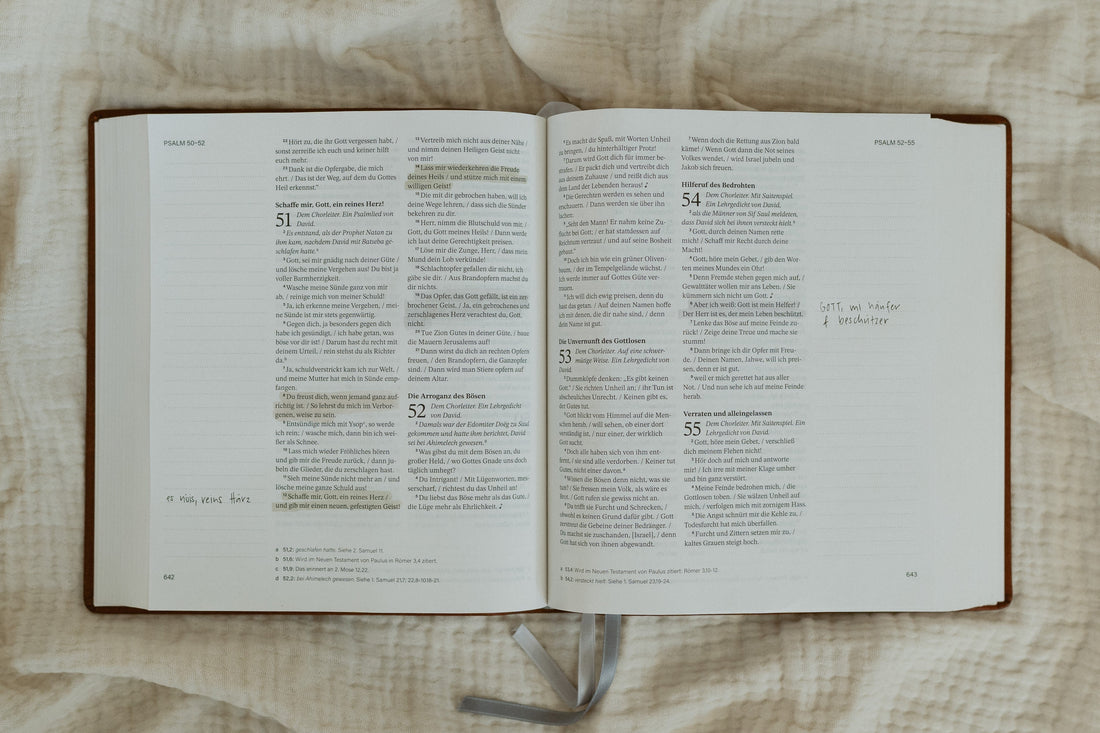 PSALM 50–52
²²Hört zu, die ihr Gott vergessen habt, /
sonst zerreiße ich euch und keiner hilft
euch mehr.
²³Dank ist die Opfergabe, die mich
ehrt. / Das ist der Weg, auf dem du Gottes
Heil erkennst."
Schaffe mir, Gott, ein reines Herz!
51 Dem Chorleiter. Ein Psalmlied von
David.
²Es entstand, als der Prophet Natan zu
ihm kam, nachdem David mit Batseba ge-
schlafen hatte.ᵃ
³Gott, sei mir gnädig nach deiner Güte /
und lösche meine Vergehen aus! Du bist ja
voller Barmherzigkeit.
⁴Wasche meine Sünde ganz von mir
ab, / reinige mich von meiner Schuld!
⁵Ja, ich erkenne meine Vergehen, / mei-
ne Sünde ist mir stets gegenwärtig.
⁶Gegen dich, ja besonders gegen dich
habe ich gesündigt, / ich habe getan, was
böse vor dir ist! / Darum hast du recht mit
deinem Urteil, / rein stehst du als Richter
da.ᵇ
⁷Ja, schuldverstrickt kam ich zur Welt, /
und meine Mutter hat mich in Sünde emp-
fangen.
⁸Du freust dich, wenn jemand ganz auf-
richtig ist. / So lehrst du mich im Verbor-
genen, weise zu sein.
⁹Entsündige mich mit Ysopᶜ, so werde
ich rein; / wasche mich, dann bin ich wei-
ßer als Schnee.
¹⁰Lass mich wieder Fröhliches hören
und gib mir die Freude zurück, / dann ju-
beln die Glieder, die du zerschlagen hast.
¹¹Sieh meine Sünde nicht mehr an / und
lösche meine ganze Schuld aus!
¹²Schaffe mir, Gott, ein reines Herz /
und gib mir einen neuen, gefestigten Geist!
es nüis, reins Härz
¹³Vertreib mich nicht aus deiner Nähe /
und nimm deinen Heiligen Geist nicht
von mir!
¹⁴Lass mir wiederkehren die Freude
deines Heils / und stütze mich mit einem
willigen Geist!
¹⁵Die mit dir gebrochen haben, will ich
deine Wege lehren, / dass sich die Sünder
bekehren zu dir.
¹⁶Herr, nimm die Blutschuld von mir, /
Gott, du Gott meines Heils! / Dann werde
ich laut deine Gerechtigkeit preisen.
¹⁷Löse mir die Zunge, Herr, / dass mein
Mund dein Lob verkünde!
¹⁸Schlachtopfer gefallen dir nicht, ich
gäbe sie dir. / Aus Brandopfern machst du
dir nichts.
¹⁹Das Opfer, das Gott gefällt, ist ein zer-
brochener Geist. / Ja, ein gebrochenes und
zerschlagenes Herz verachtest du, Gott,
nicht.
²⁰Tue Zion Gutes in deiner Güte, / baue
die Mauern Jerusalems auf!
²¹Dann wirst du dich an rechten Opfern
freuen, / den Brandopfern, die Ganzopfer
sind. / Dann wird man Stiere opfern auf
deinem Altar.
Die Arroganz des Bösen
52 Dem Chorleiter. Ein Lehrgedicht
von David.
²Damals war der Edomiter Doëg zu Saul
gekommen und hatte ihm berichtet, David
sei bei Ahimelech gewesen.ᵈ
³Was gibst du mit dem Bösen an, du
großer Held, / wo Gottes Gnade uns doch
täglich umhegt?
⁴Du Intrigant! / Mit Lügenworten, mes-
serscharf, / richtest du das Unheil an!
⁵Du liebst das Böse mehr als das Gute, /
die Lüge mehr als Ehrlichkeit. ♪
a 51,2: geschlafen hatte. Siehe 2. Samuel 11.
b 51,6: Wird im Neuen Testament von Paulus in Römer 3,4 zitiert.
c 51,9: Das erinnert an 2. Mose 12,22.
d 52,2: bei Ahimelech gewesen. Siehe 1. Samuel 21,7; 22,9-10.18-21.
642
PSALM 52–55
⁶Es macht dir Spaß, mit Worten Unheil
zu bringen, / du hinterhältiger Protz!
⁷Darum wird Gott dich für immer be-
strafen. / Er packt dich und vertreibt dich
aus deinem Zuhause / und reißt dich aus
dem Land der Lebenden heraus! ♪
⁸Die Gerechten werden es sehen und
erschauern. / Dann werden sie über ihn
lachen:
⁹„Seht den Mann! Er nahm keine Zu-
flucht bei Gott, / er hat stattdessen auf
Reichtum vertraut / und auf seine Bosheit
gebaut."
¹⁰Doch ich bin wie ein grüner Oliven-
baum, / der im Tempelgelände wächst. /
Ich werde immer auf Gottes Güte ver-
trauen.
¹¹Ich will dich ewig preisen, denn du
hast das getan. / Auf deinen Namen hoffe
ich mit denen, die dir nahe sind, / denn
dein Name ist gut.
Die Unvernunft des Gottlosen
53 Dem Chorleiter. Auf eine schwer-
mütige Weise. Ein Lehrgedicht von
David.
²Dummköpfe denken: „Es gibt keinen
Gott." / Sie richten Unheil an, / ihr Tun ist
abscheuliches Unrecht. / Keinen gibt es,
der Gutes tut.
³Gott blickt vom Himmel auf die Men-
schen herab. / will sehen, ob einer dort
verständig ist, / nur einer, der wirklich
Gott sucht.
⁴Doch alle haben sich von ihm ent-
fernt, / sie sind alle verdorben. / Keiner tut
Gutes, nicht einer davon.ᵃ
⁵Wissen die Bösen denn nicht, was sie
tun! / Sie fressen mein Volk, als wäre es
Brot. / Gott rufen sie gewiss nicht an.
⁶Da trifft sie Furcht und Schrecken, /
obwohl es keinen Grund dafür gibt. / Gott
zerstreut die Gebeine deiner Bedränger. /
Du machst sie zuschanden, [Israel], / denn
Gott hat sich von ihnen abgewandt.
⁷Wenn doch die Rettung aus Zion bald
käme! / Wenn Gott dann die Not seines
Volkes wendet, / wird Israel jubeln und
Jakob sich freuen.
Hilferuf des Bedrohten
54 Dem Chorleiter. Mit Saitenspiel.
Ein Lehrgedicht von David,
²als die Männer von Sif Saul meldeten,
dass David sich bei ihnen versteckt hielt.ᵇ
³Gott, durch deinen Namen rette
mich! / Schaff mir Recht durch deine
Macht!
⁴Gott, höre mein Gebet, / gib den Wor-
ten meines Mundes ein Ohr!
⁵Denn Fremde stehen gegen mich auf, /
Gewalttäter wollen mir ans Leben. / Sie
kümmern sich nicht um Gott. ♪
⁶Aber ich weiß: Gott ist mein Helfer! /
Der Herr ist es, der mein Leben beschützt.
⁷Lenke das Böse auf meine Feinde zu-
rück! / Zeige deine Treue und mache sie
stumm!
⁸Dann bringe ich dir Opfer mit Freu-
de. / Deinen Namen, Jahwe, will ich prei-
sen, denn er ist gut.
⁹weil er mich gerettet hat aus aller
Not. / Und nun sehe ich auf meine Feinde
herab.
Verraten und alleingelassen
55 Dem Chorleiter. Mit Saitenspiel. Ein
Lehrgedicht von David.
²Gott, höre mein Gebet, / verschließ
dich meinem Flehen nicht!
³Hör doch auf mich und antworte
mir! / Ich irre mit meiner Klage umher
und bin ganz verstört.
⁴Meine Feinde bedrohen mich, / die
Gottlosen toben. / Sie wälzen Unheil auf
mich, / verfolgen mich mit zornigem Hass.
⁵Die Angst schnürt mir die Kehle zu, /
Todesfurcht hat mich überfallen.
⁶Furcht und Zittern setzen mir zu, /
kaltes Grauen steigt hoch.
GOTT, mi häufer
& beschützer
a 53,4: Wird im Neuen Testament von Paulus zitiert: Römer 3,10-12.
b 54,2: versteckt hielt: Siehe 1. Samuel 23,19-24.
643